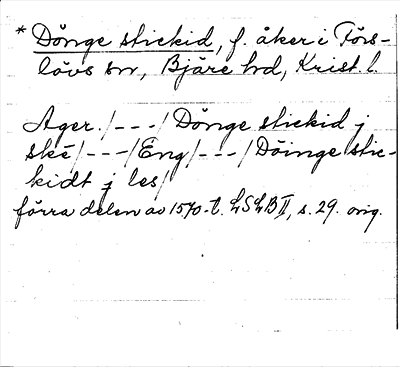 * Dönge stickid, f. åker i Förs-
lövs sn, Bjäre hd, Krist. l.
Ager. /---/ Dönge stickid j
ske /---/ Eng /---/ Döinge stic-
kidt j les/
förra delen av 1570-t. LSLB II, s. 29. orig.